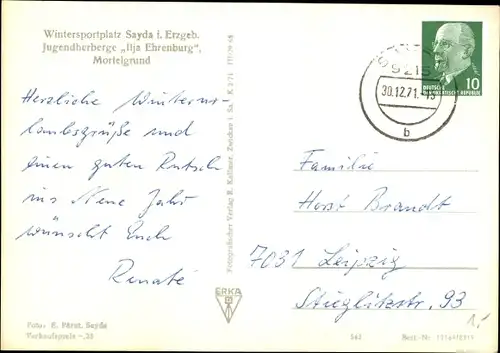 Wintersportplatz Sayda i. Erzgeb.
Jugendherberge „Ilja Ehrenburg",
Mortelgrund
Herzliche Winterur-
laubsgrüße und
einen guten Rutsch
ins Neue Jahr
wünscht Euch
Renate
Foto: E. Fürst, Sayda
Verkaufspreis -,20
Fotografischer Verlag R. Kallmer, Zwickau i. Sa.
ERKA
542
Best.-Nr.
9215
30.12.71.
b
10
DEUTSCHE
DEMOKRATISCHE REPUBLIK
Familie
Horst Brandt
7031 Leipzig
Stieglitzstr. 93
1,-